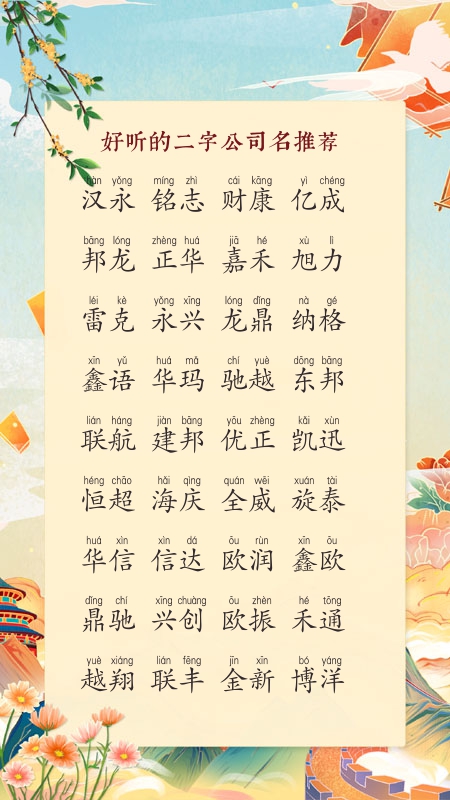 好听的二字公司名推荐
hàn yǒng míng zhì cái kāng yì chéng
汉永 铭志 财康 亿成
bāng lóng zhèng huá jiā hé xù lì
邦龙 正华 嘉禾 旭力
léi kè yǒng xīng lóng dǐng nà gé
雷克 永兴 龙鼎 纳格
xīn yǔ huá mǎ chí yuè dōng bāng
鑫语 华玛 驰越 东邦
lián háng jiàn bāng yōu zhèng kǎi xùn
联航 建邦 优正 凯迅
héng chāo hǎi qìng quán wēi xuán tài
恒超 海庆 全威 旋泰
huá xìn xìn dá ōu rùn xīn ōu
华信 信达 欧润 鑫欧
dǐng chí xīng chuàng ōu zhèn hé tōng
鼎驰 兴创 欧振 禾通
yuè xiáng lián fēng jīn xīn bó yáng
越翔 联丰 金新 博洋